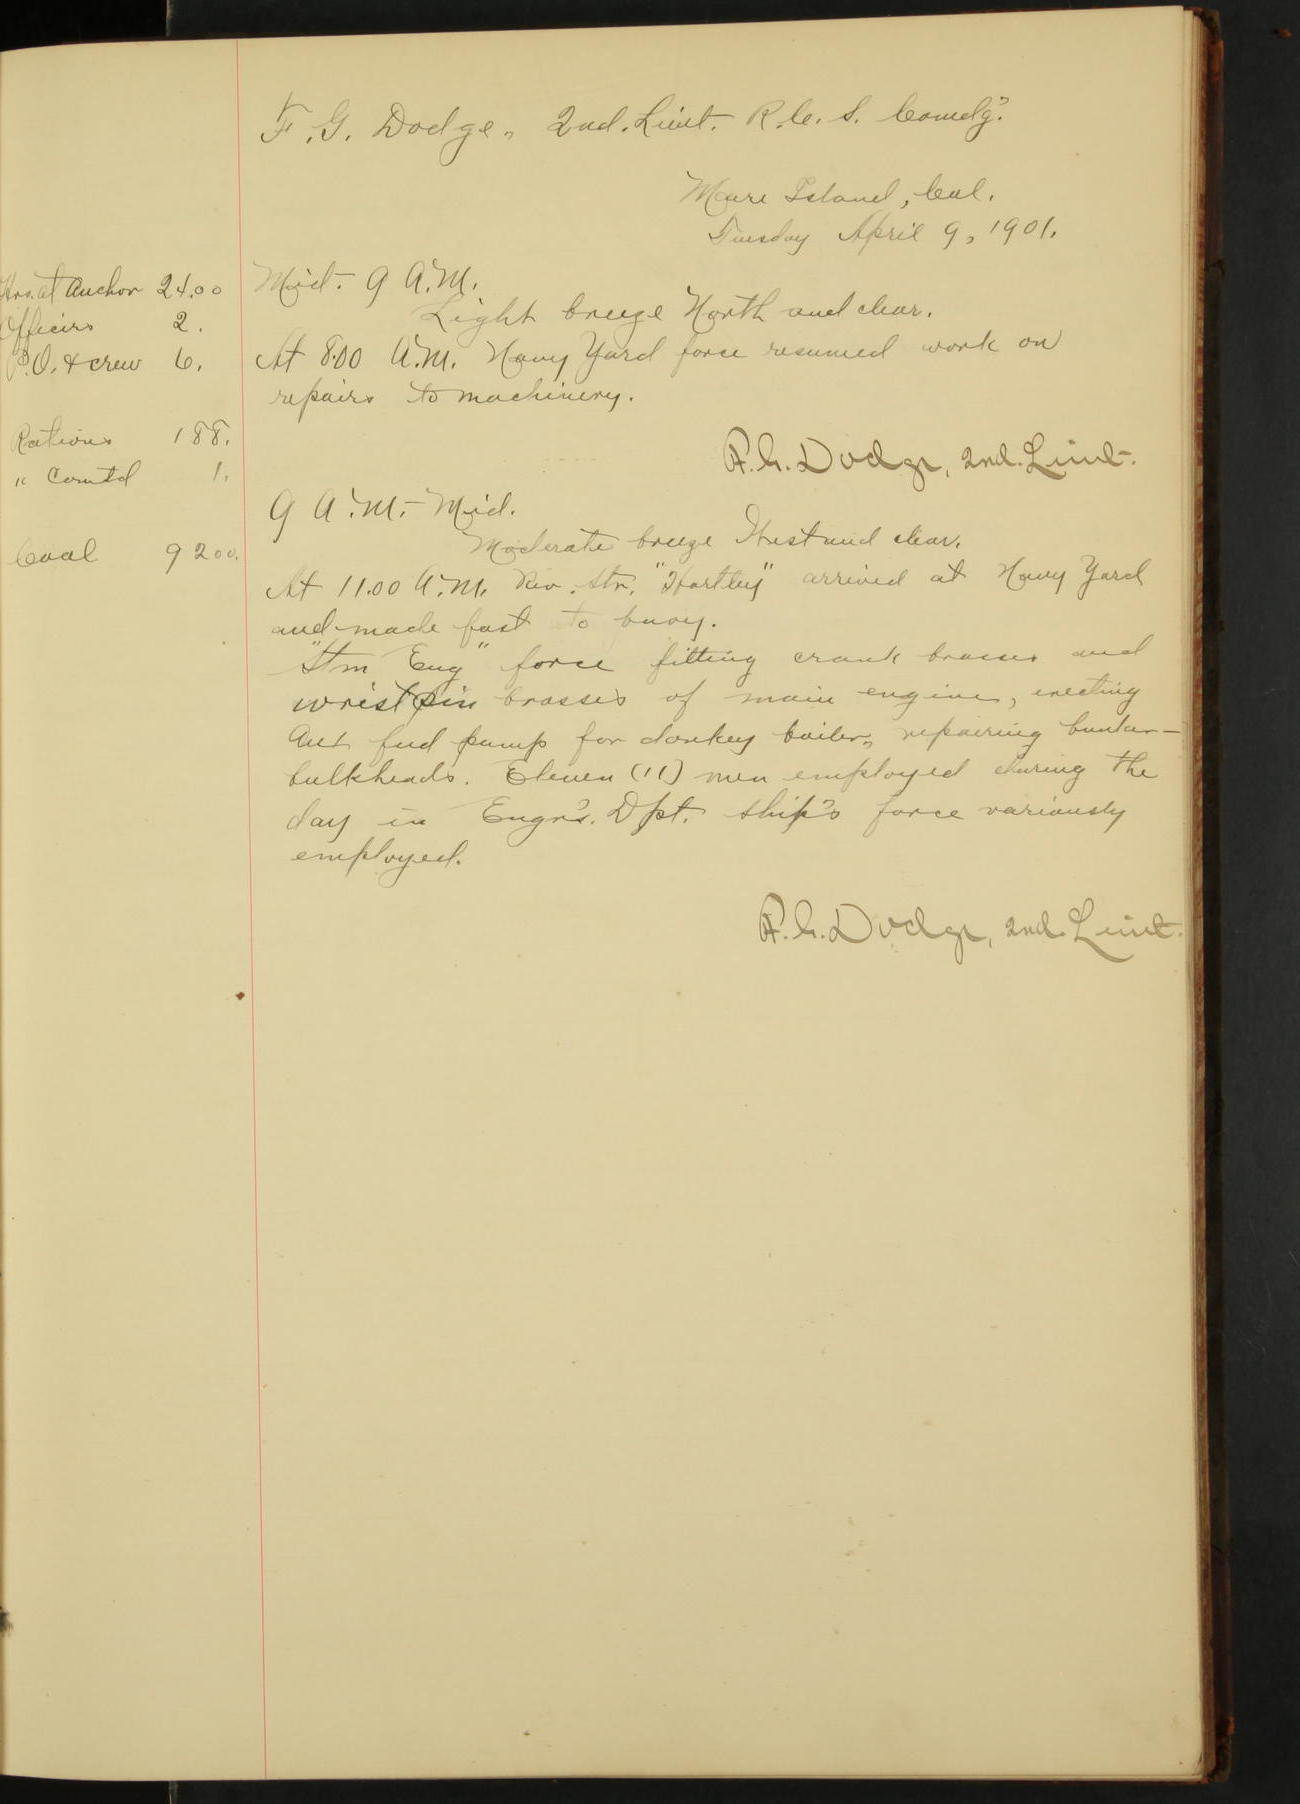 F. G. Dodge, 2nd. Lieut. R. C. S. Comdg.
Mare Island, Cal.
Tuesday April 9, 1901.
Hrs. at Anchor 24.00
Officers 2.
P.O. & crew 6.
Rations 188.
" Comtd 1.
Coal 9200.
Mid. - 9 A.M.
Light breeze North and clear.
At 8.00 A.M. Navy Yard force resumed work on
repairs to machinery.
F. G. Dodge, 2nd. Lieut.
9 A.M. - Mid.
Moderate breeze West and clear.
At 11.00 A.M. Rev. Str. "Hartley" arrived at Navy Yard
and made fast to buoy.
"Stm Eng" force fitting crank brasses and
wrist pin brasses of main engine, erecting
Aux feed pump for donkey boiler, repairing bunker-
bulkheads. Eleven (11) men employed during the
day in Engr's. Dpt. Ship's force variously
employed.
F. G. Dodge, 2nd. Lieut.